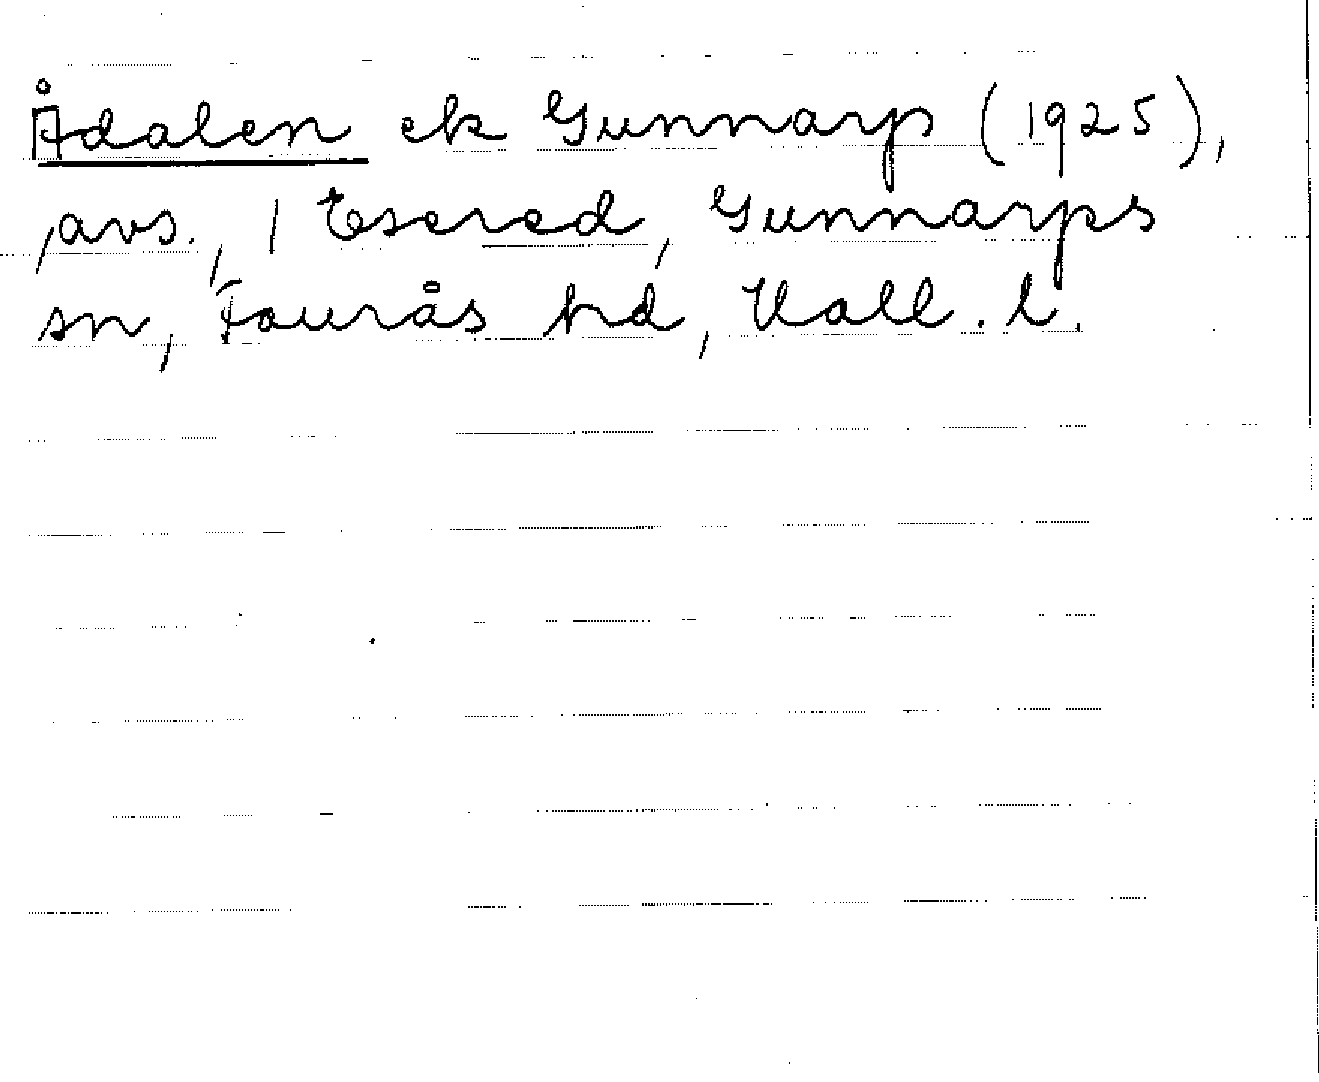 Ådalen ek Gunnarp (1925),
avs., 1 Esered, Gunnarps
sn, Faurås hd, Hall. l.